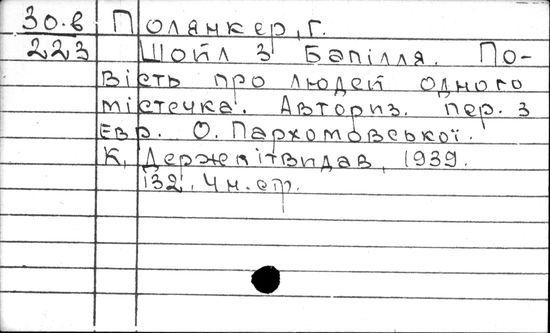 30.в Полянкер, Г.
223 Шойл з Бапілля. По-
вість про людей одного
містечка. Авториз. пер. з
євр. О. Пархомовської.
К, Держлітвидав, 1939.
132, 4 н. стр.